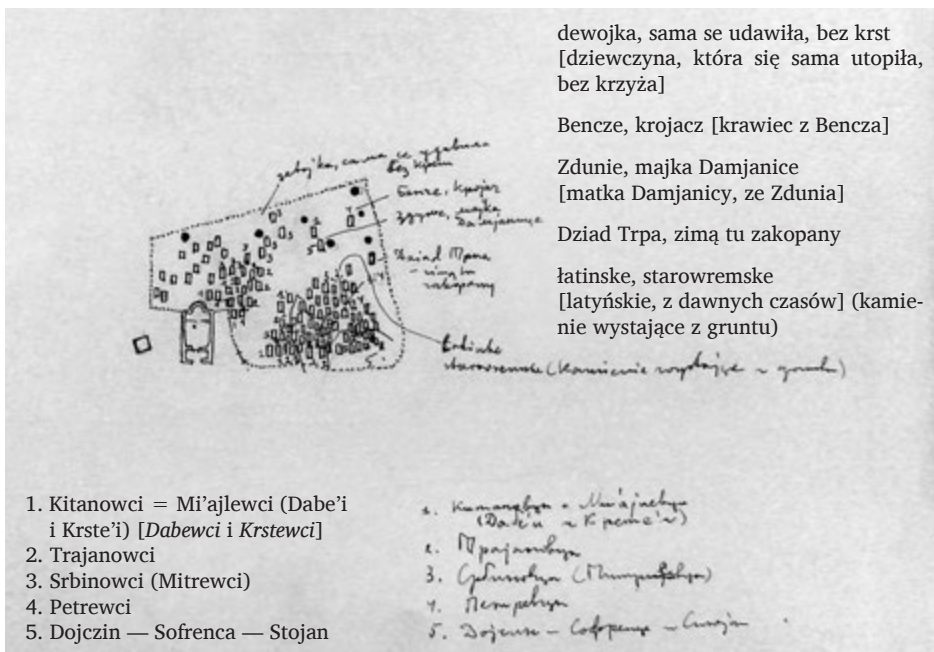 dewojka, sama se udawiła, bez krst
[dziewczyna, która się sama utopiła,
bez krzyża]
Bencze, krojacz [krawiec z Bencza]
Zdunie, majka Damjanice
[matka Damjanicy, ze Zdunia]
Dziad Trpa, zimą tu zakopany
łatinske, starowremske
[latyńskie, z dawnych czasów] (kamie-
nie wystające z gruntu)
Бенче, Кројач
Здуње, мајка
Дамјанице
Dziad Трпа
– zimą tu
zakopany
starowremske (Kamienie wystające z gruntu)
1. Kitanowci = Mi’ajlewci (Dabe’i
i Krste’i) [Dabewci i Krstewci]
2. Trajanowci
3. Srbinowci (Mitrewci)
4. Petrewci
5. Dojczin — Sofrenca — Stojan
1.
2. Трајановци
3. Србиновци
4. Петревци
5. Дојчин –